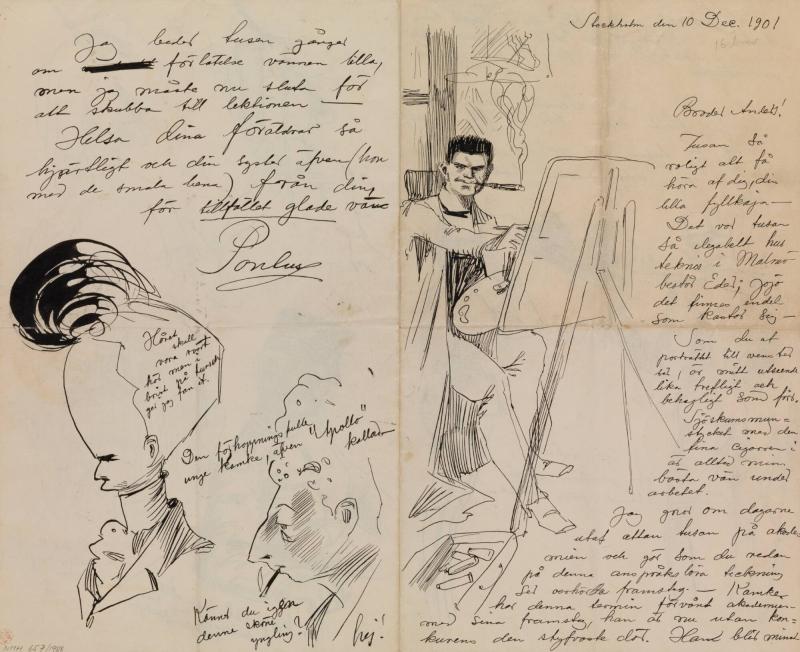 Jag beder tusen gånger
om förlåtelse vännen lilla,
men jag måste nu sluta för
att skubba till lektionen —
Helsa dina föräldrar så
hjärtligt och din syster äfven (hon
med de smala bena) från din
för tillfället glade vän
Pontus
Håret skall
vara svart
här men i
brist på tusch
ger jag fan i't.
Den förhoppningsfulle
unge Kamke, äfven "Apollo"
kallad
Känner du igen
denne sköne
yngling?
hej!
NMH 657/1988
Stockholm den 10 Dec. 1901
Broder Anders!
Tusan så
roligt att få
höra af dig, din
lilla fyllkaja —
Det var tusan
så elegant hus
i Malmö
Eder; jojo
det finnes endel
som kantor sig —
Som du af
porträttet till venster
ser, är mitt utseende
lika trefligt och
behagligt som förr.
Sjöskumsmun=
stycket med den
fina cigarren i
är alltid min
bästa vän under
arbetet.
Jag gnor om dagarne
utaf attan tusan på akade=
mien och gör som du redan
på denna anspråkslösa teckning
ser storartade framsteg — Kamke
har denna termin förvånt akademien
med sina framsteg, han är nu utan kon=
kurens den styfvaste där. Hans blir minst